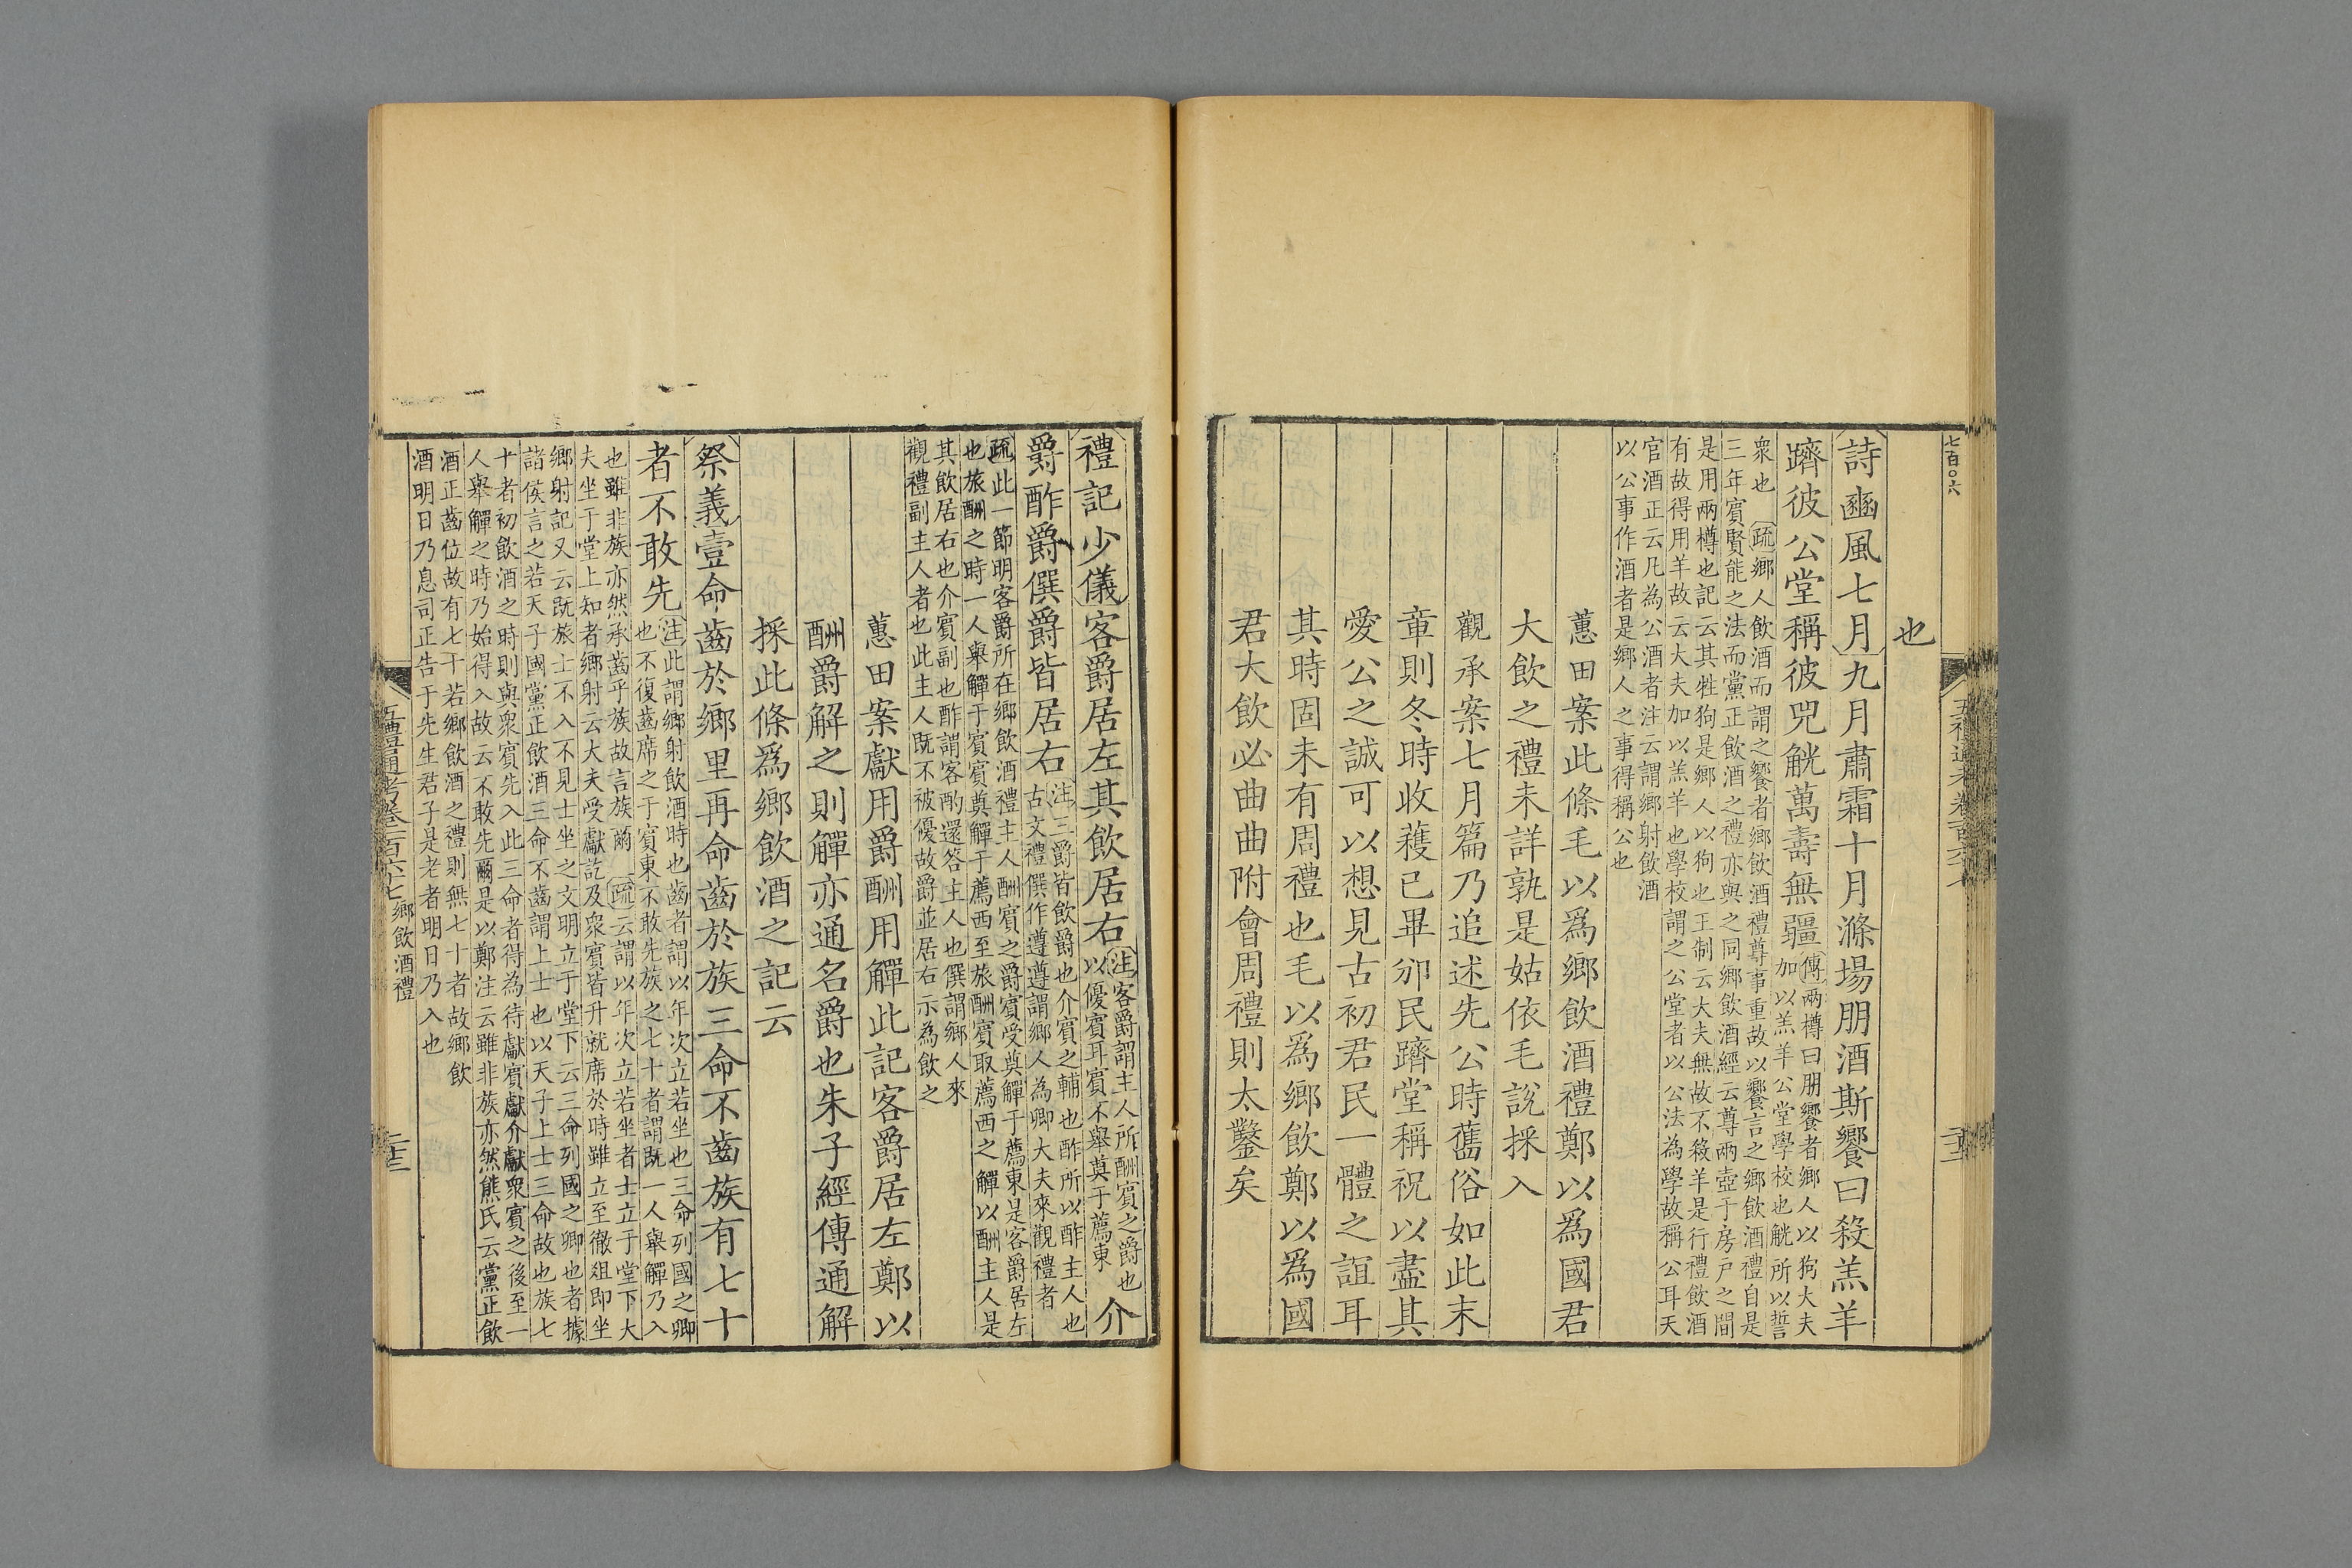 七百〇六
五禮通考卷一百六十七
也
詩豳風七月九月肅霜十月滌場朋酒斯饗曰殺羔羊
躋彼公堂稱彼兕觥萬壽無疆傳兩樽曰朋饗者鄉人以狗大夫
加以羔羊公堂學校也觥所以誓
衆也 疏鄉人飲酒而謂之饗者鄉飲酒禮尊事重故以饗言之鄉飲酒禮自是
三年賓賢能之法而黨正飲酒之禮亦與之同鄉飲酒經云尊兩壺于房戶之間
是用兩樽也記云其牲狗是鄉人以狗也王制云大夫無故不殺羊是行禮飲酒
有故得用羊故云大夫加以羔羊也學校謂之公堂者以公法為學故稱公耳天
官酒正云凡為公酒者注云謂鄉射飲酒
以公事作酒者是鄉人之事得稱公也
蕙田案此條毛以爲鄉飲酒禮鄭以爲國君
大飲之禮未詳孰是姑依毛說採入
觀承案七月篇乃追述先公時舊俗如此末
章則冬時收穫已畢卹民躋堂稱祝以盡其
愛公之誠可以想見古初君民一體之誼耳
其時固未有周禮也毛以爲鄉飲鄭以爲國
君大飲必曲曲附會周禮則太鑿矣
禮記少儀客爵居左其飲居右注客爵謂主人所酬賓之爵也
以優賓耳賓不舉奠于薦東介
爵酢爵僎爵皆居右注三爵皆飲爵也介賓之輔也酢所以酢主人也
古文禮僎作遵遵謂鄉人為卿大夫來觀禮者
疏此一節明客爵所在鄉飲酒禮主人酬賓之爵賓受奠觶于薦東是客爵居左
也旅酬之時一人舉觶于賓賓奠觶于薦西至旅酬賓取薦西之觶以酬主人是
其飲居右也介賓副也酢謂客酌還答主人也僎謂鄉人來
觀禮副主人者也此主人既不被優故爵並居右示為飲之
蕙田案獻用爵酬用觶此記客爵居左鄭以
酬爵解之則觶亦通名爵也朱子經傳通解
採此條爲鄉飲酒之記云
祭義壹命齒於鄉里再命齒於族三命不齒族有七十
者不敢先注此謂鄉射飲酒時也齒者謂以年次立若坐也三命列國之卿
也不復齒席之于賓東不敢先族之七十者謂既一人舉觶乃入
也雖非族亦然承齒乎族故言族爾 疏云謂以年次立若坐者士立于堂下大
夫坐于堂上知者鄉射云大夫受獻訖及衆賓皆升就席於時雖立至徹俎即坐
鄉射記又云既旅士不入不見士坐之文明立于堂下云三命列國之卿也者據
諸侯言之若天子國黨正飲酒三命不齒謂上士也以天子上士三命故也族七
十者初飲酒之時則與衆賓先入此三命者得為待獻賓獻介獻衆賓之後至一
人舉觶之時乃始得入故云不敢先爾是以鄭注云雖非族亦然熊氏云黨正飲
酒正齒位故有七十若鄉飲酒之禮則無七十者故鄉飲
酒明日乃息司正告于先生君子是老者明日乃入也
五禮通考卷一百六十七 鄉飲酒禮
二十三